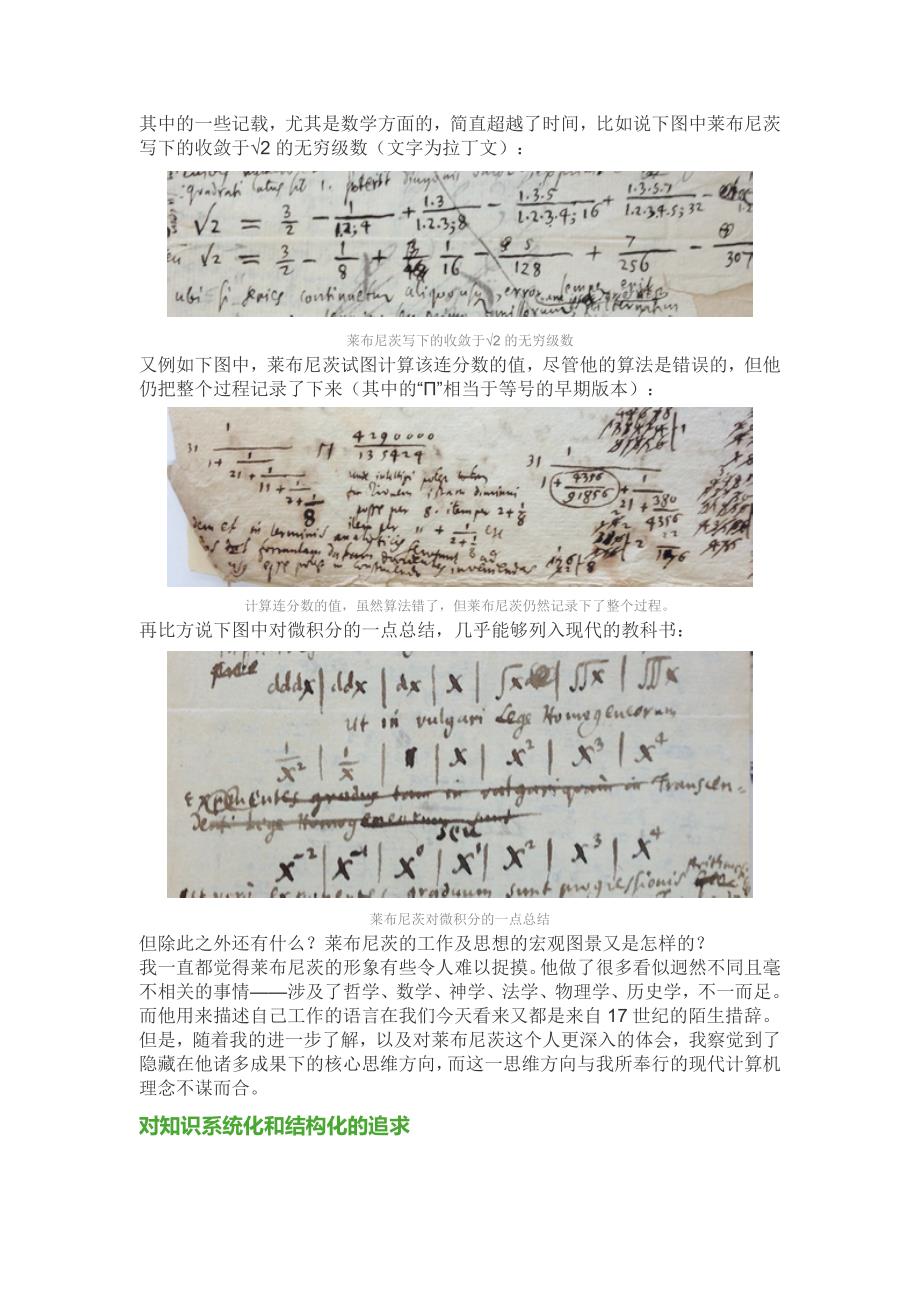 其中的一些记载，尤其是数学方面的，简直超越了时间，比如说下图中莱布尼茨
写下的收敛于√2 的无穷级数（文字为拉丁文）：
√2 = 3/2 − 1/1.2;4 + 1.3/1.2.3;8 − 1.3.5/1.2.3.4;16 + 1.3.5.7/1.2.3.4.5;32 −
√2 = 3/2 − 1/8 + 1/16 − 5/128 + 7/256 − 307
ubi si series continuetur aliquousque, error semper erit
莱布尼茨写下的收敛于√2 的无穷级数
又例如下图中，莱布尼茨试图计算该连分数的值，尽管他的算法是错误的，但他
仍把整个过程记录了下来（其中的“Π”相当于等号的早期版本）：
31 1/1+1/21+1/11+1/2+1/8 Π 4290000/135424
31 1/1+4356/91856+1/21+380/4356
计算连分数的值，虽然算法错了，但莱布尼茨仍然记录下了整个过程。
再比方说下图中对微积分的一点总结，几乎能够列入现代的教科书：
dddx | ddx | dx | x | ∫x | ∬x | ∭x
Ut in vulgari Lege Homogeneorum
1/x² | 1/x | 1 | x | x² | x³ | x⁴
Exponentes gradus tam in vulgari quam in Transcen-
denti Lege Homogeneorum sunt
seu
x⁻² | x⁻¹ | x⁰ | x¹ | x² | x³ | x⁴
exponentes graduum sunt progressionis
莱布尼茨对微积分的一点总结
但除此之外还有什么？莱布尼茨的工作及思想的宏观图景又是怎样的？
我一直都觉得莱布尼茨的形象有些令人难以捉摸。他做了很多看似迥然不同且毫
不相关的事情——涉及了哲学、数学、神学、法学、物理学、历史学，不一而足。
而他用来描述自己工作的语言在我们今天看来又都是来自 17 世纪的陌生措辞。
但是，随着我的进一步了解，以及对莱布尼茨这个人更深入的体会，我察觉到了
隐藏在他诸多成果下的核心思维方向，而这一思维方向与我所奉行的现代计算机
理念不谋而合。
对知识系统化和结构化的追求